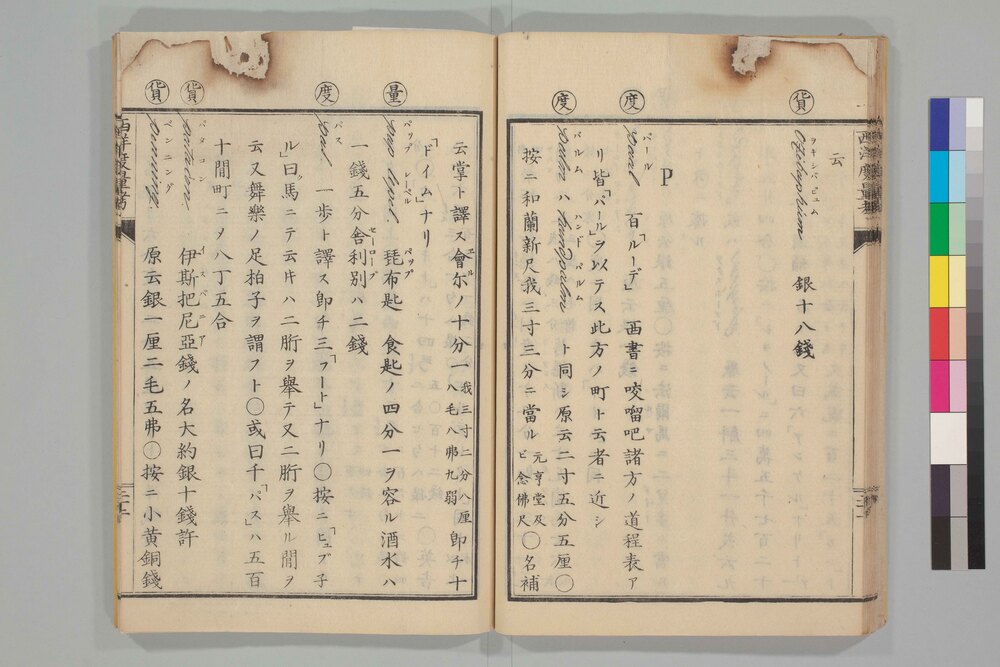 云
貨 Ozehuphium ヲキシバヒュム 銀十八錢
P
度 paal パール 百「ルーデ」 西書ニ咬𠺕吧諸方ノ道程表ア
リ皆「パール」ヲ以テス此方ノ町ト云者ニ近シ
度 palm パルム ハ handpalm ハンドパルム ト同シ原云二寸五分五厘〇
按ニ和蘭新尺我三寸三分ニ當ル 元亨堂及ビ念佛尺 〇名補
云掌ト譯ス會尓ノ十分一 我三寸二分八厘八毛八弗九弱 卽チ十
「ドイム」ナリ
量 pap lepel パップ レーペル 琵布匙 食匙ノ四分一ヲ容ル酒水ハ
一錢五分舎利別ハ二錢
度 pas パス 一歩ト譯ス卽チ三「フート」ナリ〇按ニ「ヒュブ子
ル」曰馬ニテ云キハ二胻ヲ擧テ又二胻ヲ擧ル間ヲ
云又舞樂ノ足拍子ヲ謂フト〇或曰千「パス」ハ五百
十間町ニメ八丁五合
貨 パタコン 伊斯把尼亞錢ノ名大約銀十錢許
貨 penning ペンニング 原云銀一厘二毛五弗〇按ニ小黄銅錢